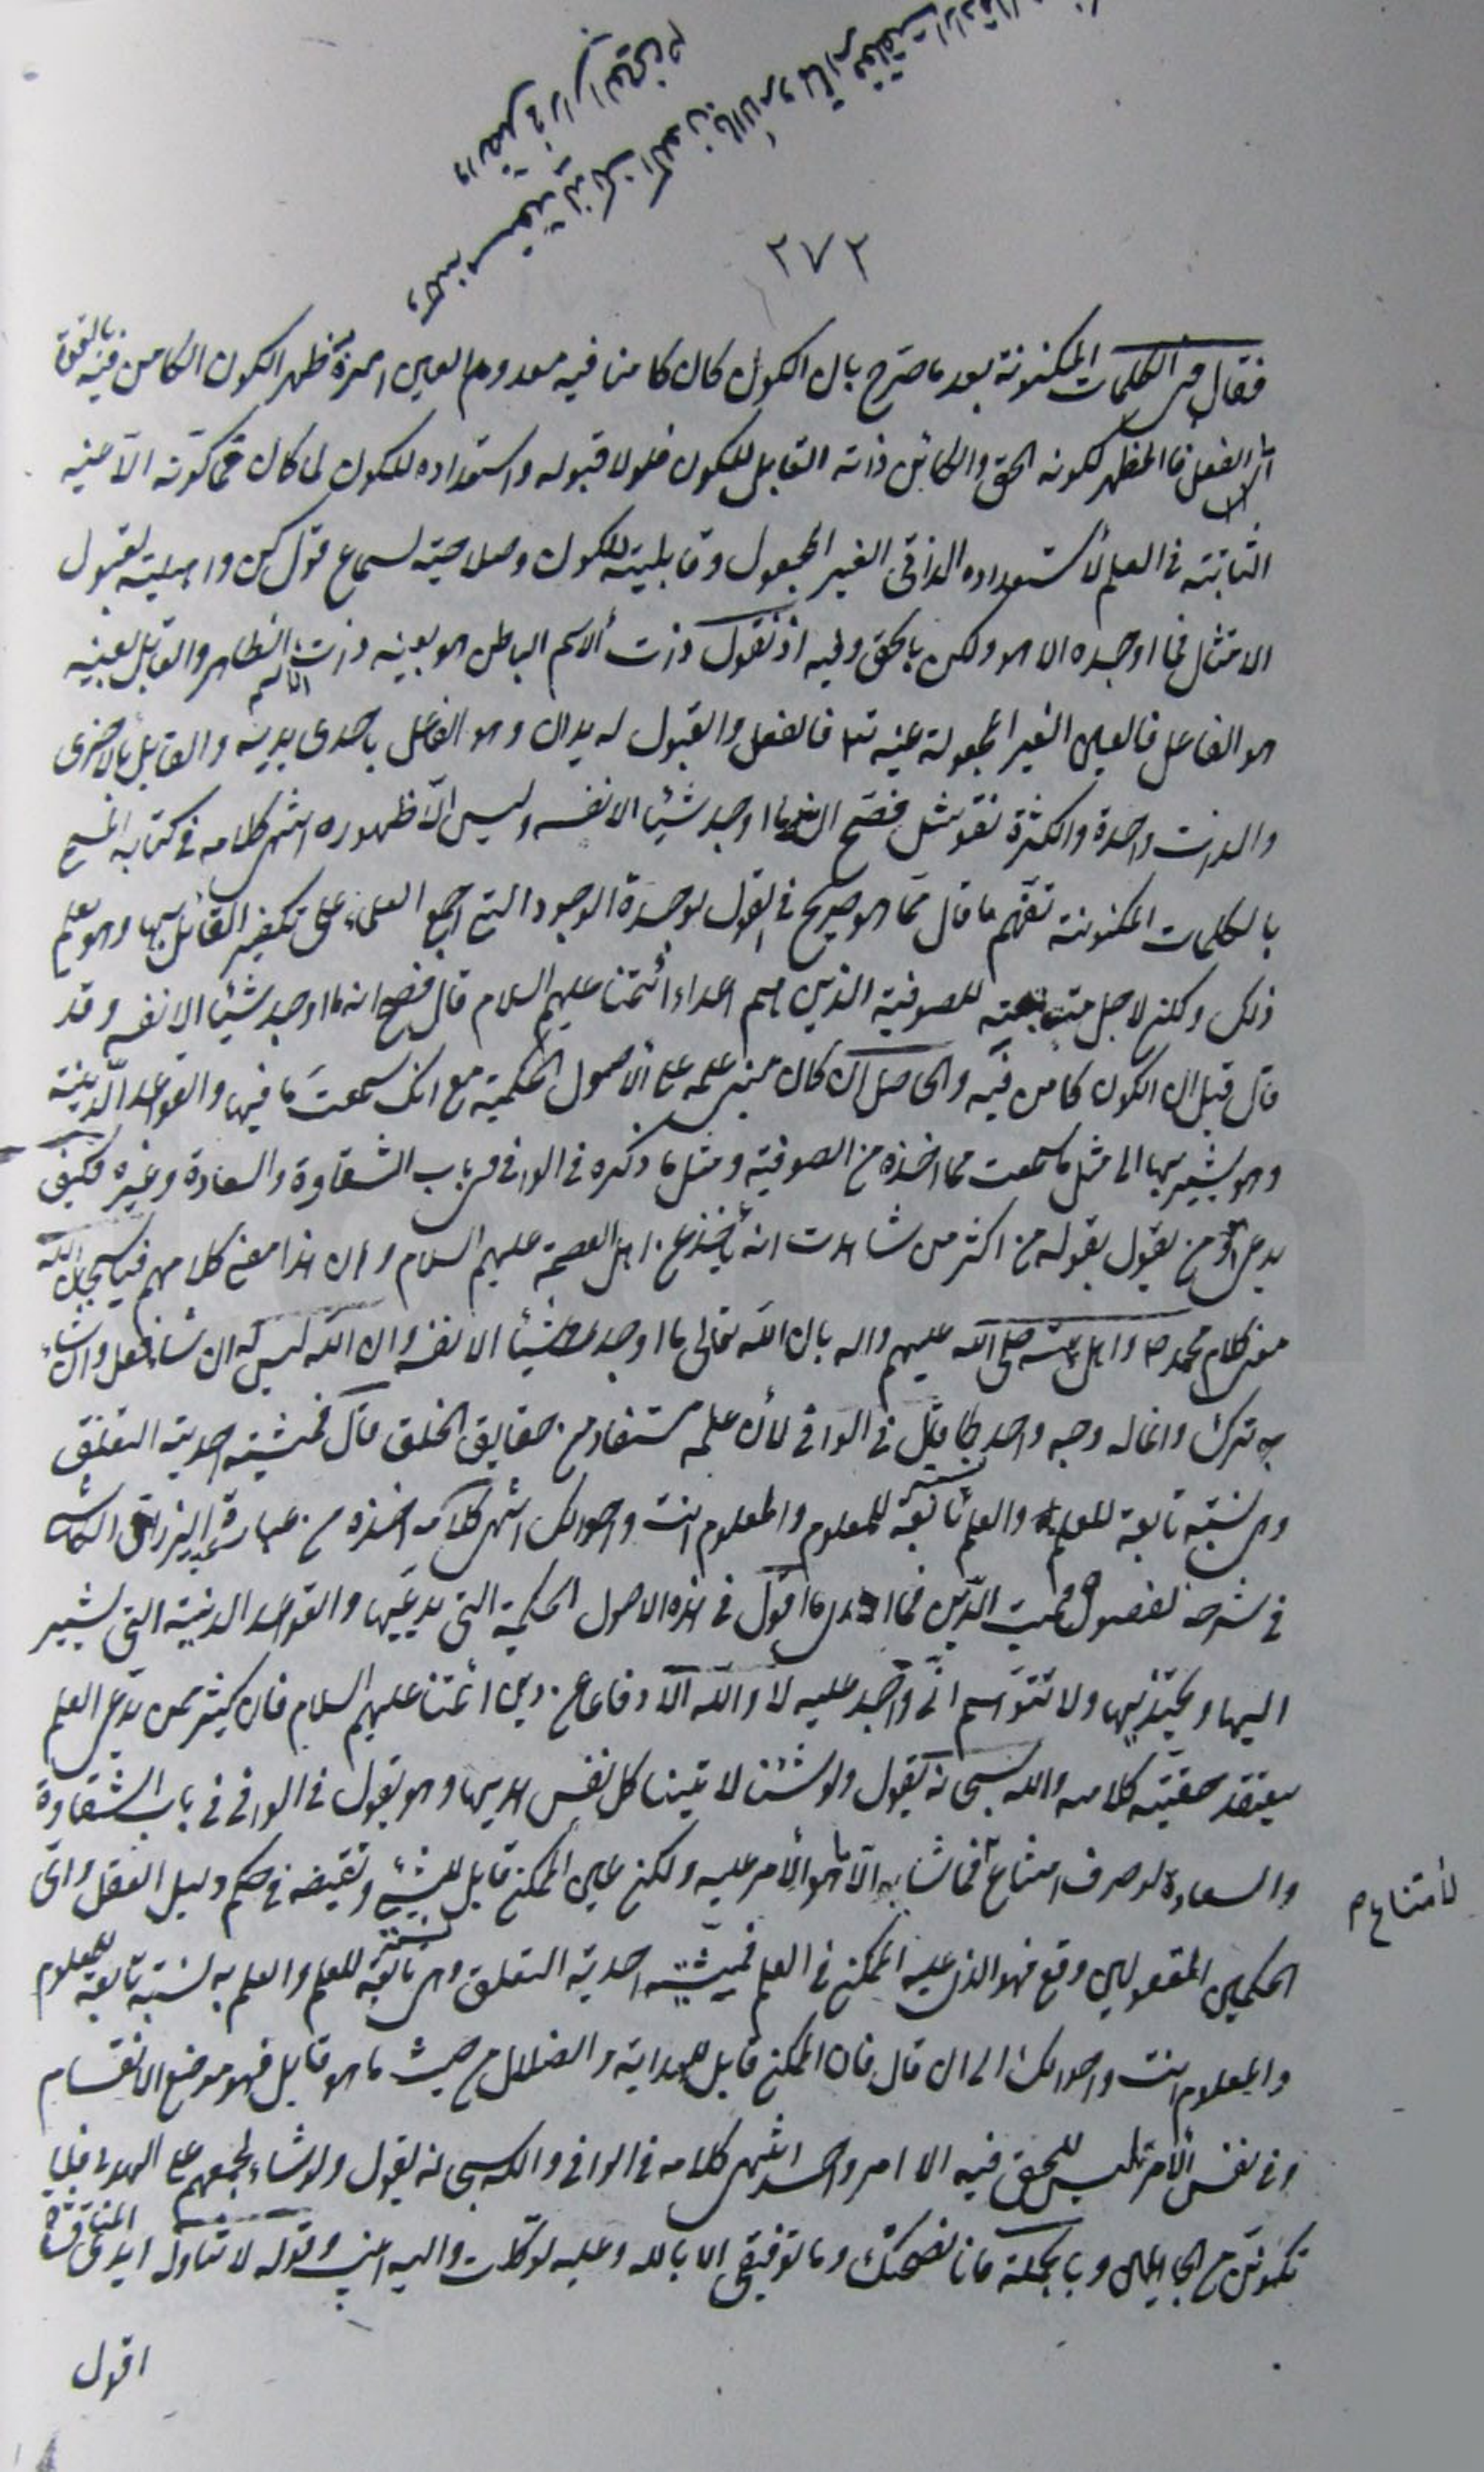 ٢٧٢
فقال في الكلمات المكنونة بعد ما صرّح بان الكون كان كامنا فيه معدوم العين امره ظهر الكون الكامن فيه بالقوة
الى الفعل فالمظهر لكونه الحق والكائن ذاته القابل للكون فلولا قبوله واستعداده للكون لما كان فما كوّنه الا عينه
الثابتة في العلم لاستعداده الذاتي الغير المجعول وقابليته للكون وصلاحيته لسماع قول كن واهليته لقبول
الامتثال فما اوجده الا هو ولكن بالحق وفيه او نقول ذات الاسم الباطن هو بعينه ذات الاسم الظاهر والقابل بعينه
هو الفاعل فالعين الغير المجعولة عينه تع فالفعل والقبول له يدان وهو الفاعل باحدى يديه والقابل بالاخرى
والذات واحدة والكثرة نقوش فصح انه ما اوجد شيئا الا نفسه وليس الا ظهوره انتهى كلامه في كتابه المسمى
بالكلمات المكنونة تفهّم ما قال مما هو صريح في القول بوحدة الوجود التي اجمع العلماء على تكفير القائل بها وهو يعلم
ذلك ولكن لاجل متابعته للصوفية الذين هم اعداء ائمتنا عليهم السلام قال فصح انه ما اوجد شيئا الا نفسه وقد
قال قبل ان الكون كامن فيه والحاصل ان كان مبنى علمه على الاصول الحكمية مع انك سمعت ما فيها والقواعد الدينية
وهو يشير بها الى مثل ما سمعت مما اخذه من الصوفية ومثل ما ذكره في الوافي في باب الشقاوة والسعادة وغيره فكيف
يدعى هو ومن يقول بقوله من اكثر من شاهدت انه ياخذ عن اهل العصمة عليهم السلام وان هذا معنى كلامهم فيا سبحان الله
معنى كلام محمد ص واهل بيته صلى الله عليهم واله بان الله تعالى ما اوجد شيئا الا نفسه وان الله ليس له ان شاء فعل وان شاء
ترك وانما له وجه واحد كما قال في الوافي لان علمه مستفاد من حقايق الخلق قال فمشيته احدية التعلق
وهي نسبة تابعة للعلم والعلم نسبة تابعة للمعلوم والمعلوم انت واحوالك انتهى كلامه اخذه من عبارة عبد الرزاق الكاشي
في شرحه لفصوص مميت الدين فما ادرى ما اقول في هذه الاصول الحكمية التي يدعيها والقواعد الدينية التي يشير
اليها ويحتذيها ولا تتوهم اني واجد عليه لا والله الا دفاعا عن دين ائمتنا عليهم السلام فان كثيرا ممن يدعى العلم
يعتقد حقية كلامه والله سبحانه يقول ولو شئنا لاتينا كل نفس هديها وهو يقول في الوافي في باب الشقاوة
والسعادة لو حرف امتناع لامتناع فما شاء الا ما هو الامر عليه ولكن عين الممكن قابل للشيء ونقيضه في حكم دليل العقل واي
الحكمين المعقولين وقع فهو الذي عليه الممكن في العلم فمشيته احدية التعلق وهي نسبة تابعة للعلم والعلم نسبة تابعة للمعلوم
والمعلوم انت واحوالك الى ان قال فان الممكن قابل للهداية والضلال من حيث ما هو قابل فهو موضع الانقسام
وفي نفس الامر ليس للحق فيه الا امر واحد انتهى كلامه في الوافي والله سبحانه يقول ولو شاء لجمعهم على الهدى فلا
تكونن من الجاهلين وبالجملة فانا نصحتك وما توفيقي الا بالله وعليه توكلت واليه انيب وقوله لا تتناوله ايدي
اقول